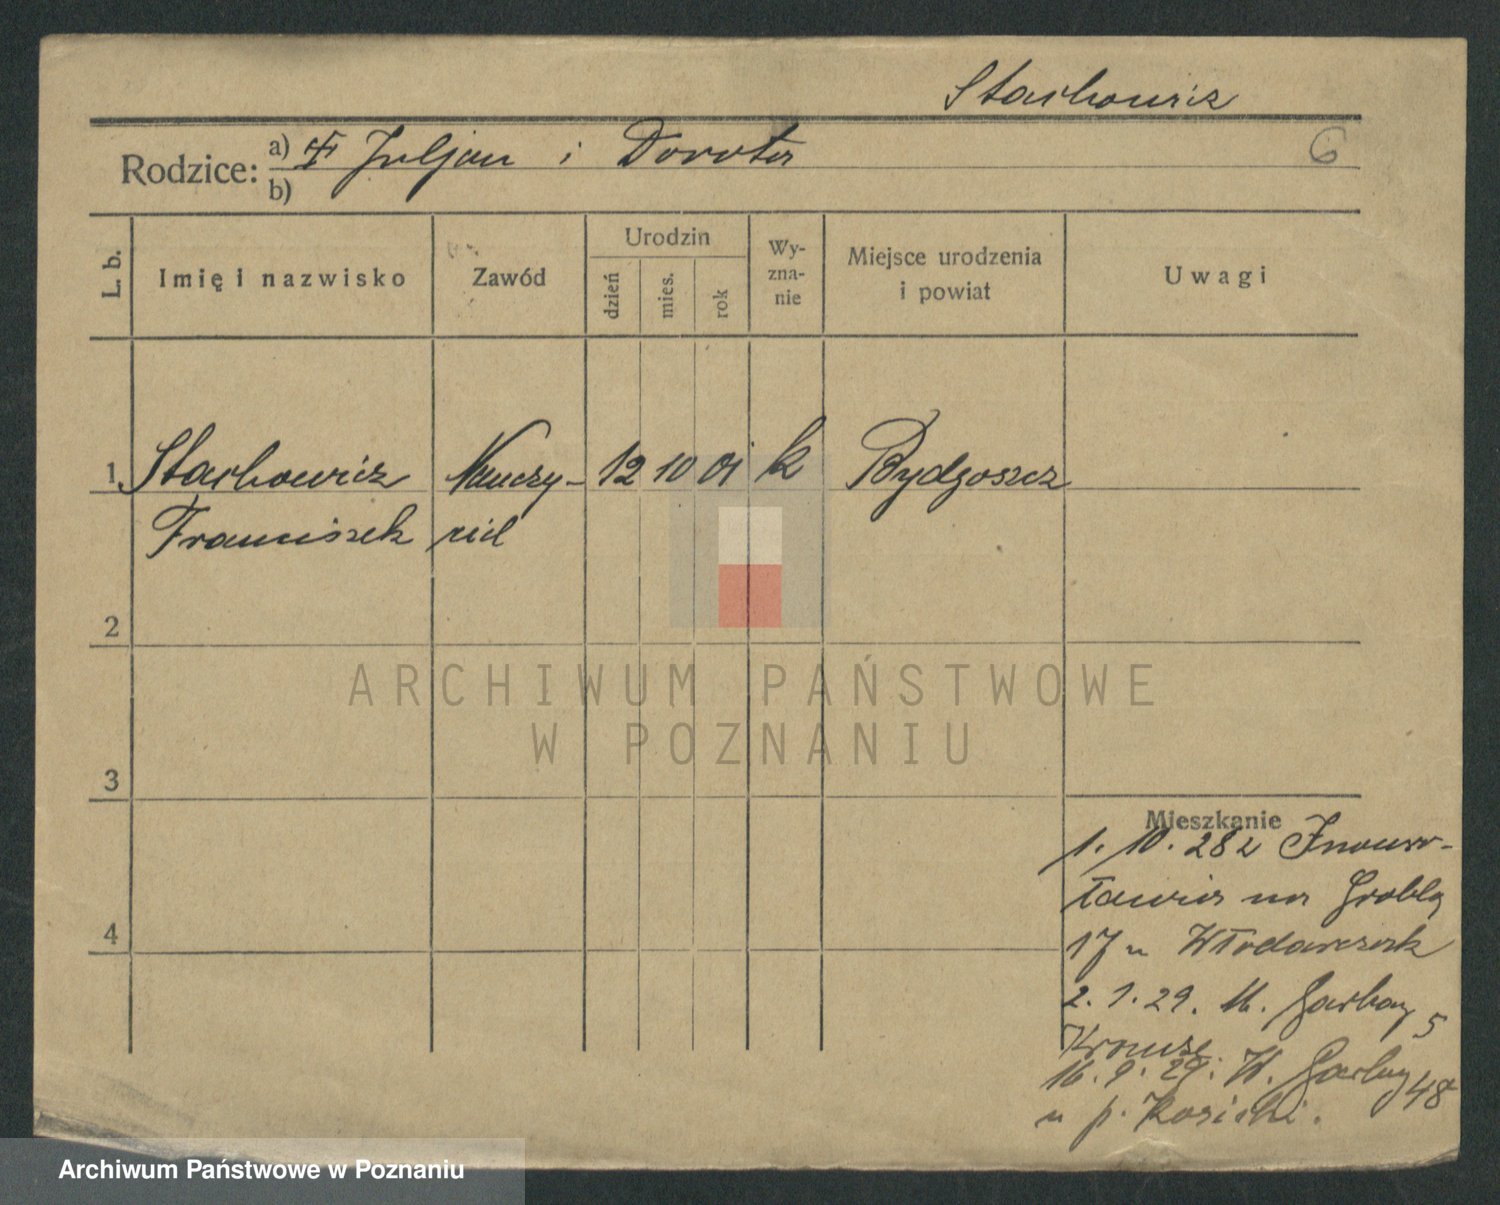 Stachowicz
Rodzice: a) Juljan i Dorota
b)
6
L. b.
Imię i nazwisko
Zawód
Urodzin
dzień
mies.
rok
Wy-
zna-
nie
Miejsce urodzenia
i powiat
Uwagi
1 Stachowicz Nauczy- 12 10 01 k Bydgoszcz
Franciszek ciel
2
3
4
Mieszkanie
1. 10. 28 z Inowro-
cławia na Grobla
17 u Włodarczak
2. 1. 29. W. Garbary 5
Krause
16. 9. 29. W. Garbary 48
u p. Kosicki.
ARCHIWUM PAŃSTWOWE
W POZNANIU
Archiwum Państwowe w Poznaniu